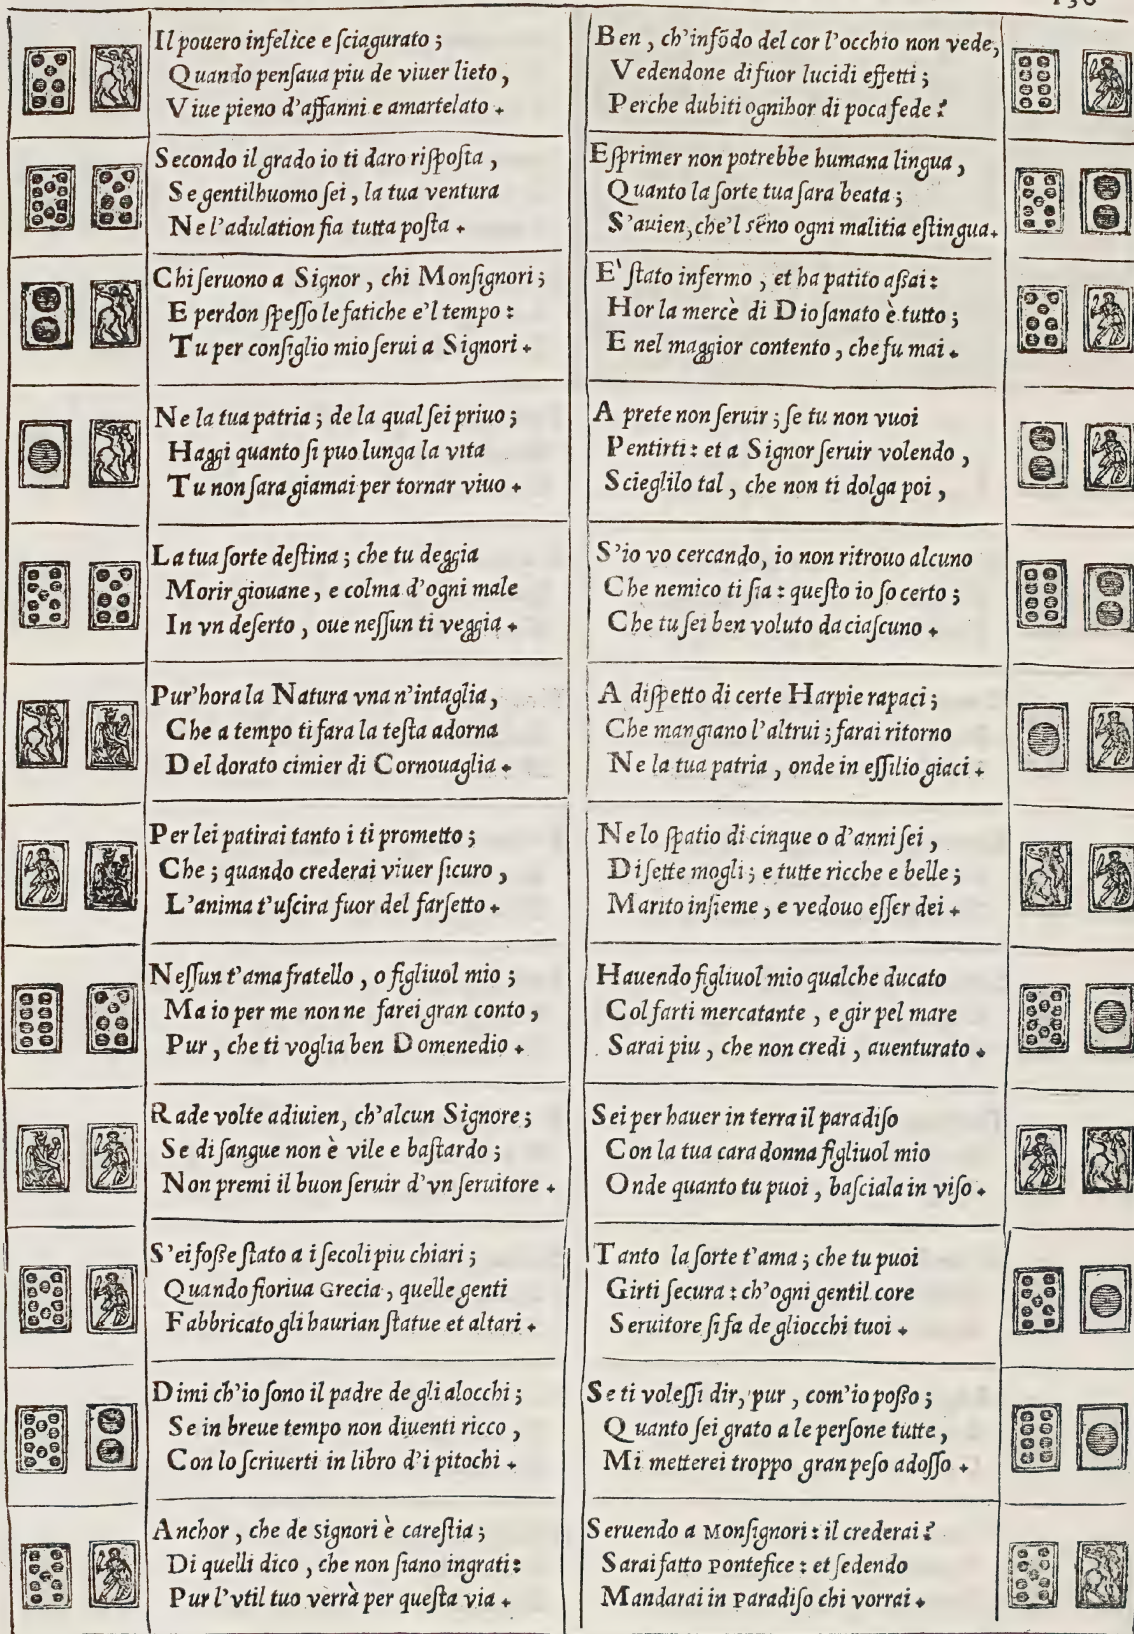 Il pouero infelice e ſciagurato ;
Quando penſaua piu de viuer lieto ,
Viue pieno d'affanni e amartelato .
Secondo il grado io ti daro riſpoſta ,
Se gentilhuomo ſei , la tua ventura
Ne l'adulation fia tutta poſta .
Chi ſeruono a Signor , chi Monſignori ;
E perdon ſpeſſo le fatiche e'l tempo :
Tu per conſiglio mio ſerui a Signori .
Ne la tua patria ; de la qual ſei priuo ;
Haggi quanto ſi puo lunga la vita
Tu non ſara giamai per tornar viuo .
La tua ſorte deſtina ; che tu deggia
Morir giouane , e colma d'ogni male
In vn deſerto , oue neſſun ti veggia .
Pur'hora la Natura vna n'intaglia ,
Che a tempo ti fara la teſta adorna
Del dorato cimier di Cornouaglia .
Per lei patirai tanto i ti prometto ;
Che ; quando crederai viuer ſicuro ,
L'anima t'uſcira fuor del farſetto .
Neſſun t'ama fratello , o figliuol mio ;
Ma io per me non ne farei gran conto ,
Pur , che ti voglia ben Domenedio .
Rade volte adiuien, ch'alcun Signore ;
Se di ſangue non è vile e baſtardo ;
Non premi il buon ſeruir d'vn ſeruitore .
S'ei foße ſtato a i ſecoli piu chiari ;
Quando fioriua Grecia , quelle genti
Fabbricato gli haurian ſtatue et altari .
Dimi ch'io ſono il padre de gli alocchi ;
Se in breue tempo non diuenti ricco ,
Con lo ſcriuerti in libro d'i pitochi .
Anchor , che de signori è careſtia ;
Di quelli dico , che non ſiano ingrati :
Pur l'vtil tuo verrà per queſta via .
Ben , ch'infõdo del cor l'occhio non vede,
Vedendone di fuor lucidi effetti ;
Perche dubiti ognihor di poca fede ?
Eſprimer non potrebbe humana lingua ,
Quanto la ſorte tua ſara beata ;
S'auien, che'l sẽno ogni malitia eſtingua .
E' ſtato infermo , et ha patito aſsai :
Hor la mercè di Dio ſanato è tutto ;
E nel maggior contento , che fu mai .
A prete non ſeruir ; ſe tu non vuoi
Pentirti : et a Signor ſeruir volendo ,
Scieglilo tal , che non ti dolga poi ,
S'io vo cercando, io non ritrouo alcuno
Che nemico ti ſia : queſto io ſo certo ;
Che tu ſei ben voluto da ciaſcuno .
A diſpetto di certe Harpie rapaci ;
Che mangiano l'altrui ; farai ritorno
Ne la tua patria , onde in eſſilio giaci .
Ne lo ſpatio di cinque o d'anni ſei ,
Di ſette mogli ; e tutte ricche e belle ;
Marito inſieme , e vedouo eſſer dei .
Hauendo figliuol mio qualche ducato
Col farti mercatante , e gir pel mare
Sarai piu , che non credi , auenturato .
Sei per hauer in terra il paradiſo
Con la tua cara donna figliuol mio
Onde quanto tu puoi , baſciala in viſo .
Tanto la ſorte t'ama ; che tu puoi
Girti ſecura : ch'ogni gentil core
Seruitore ſi fa de gliocchi tuoi .
Se ti voleſſi dir, pur , com'io poßo ;
Quanto ſei grato a le perſone tutte ,
Mi metterei troppo gran peſo adoſſo .
Seruendo a Monſignori : il crederai ?
Sarai fatto Pontefice : et ſedendo
Mandarai in Paradiſo chi vorrai .